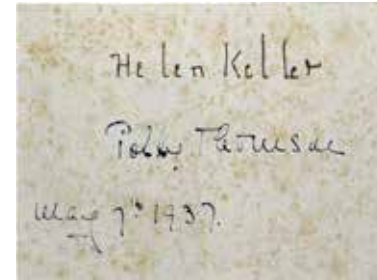 Helen Keller
Polly Thomson
May 7th 1937.